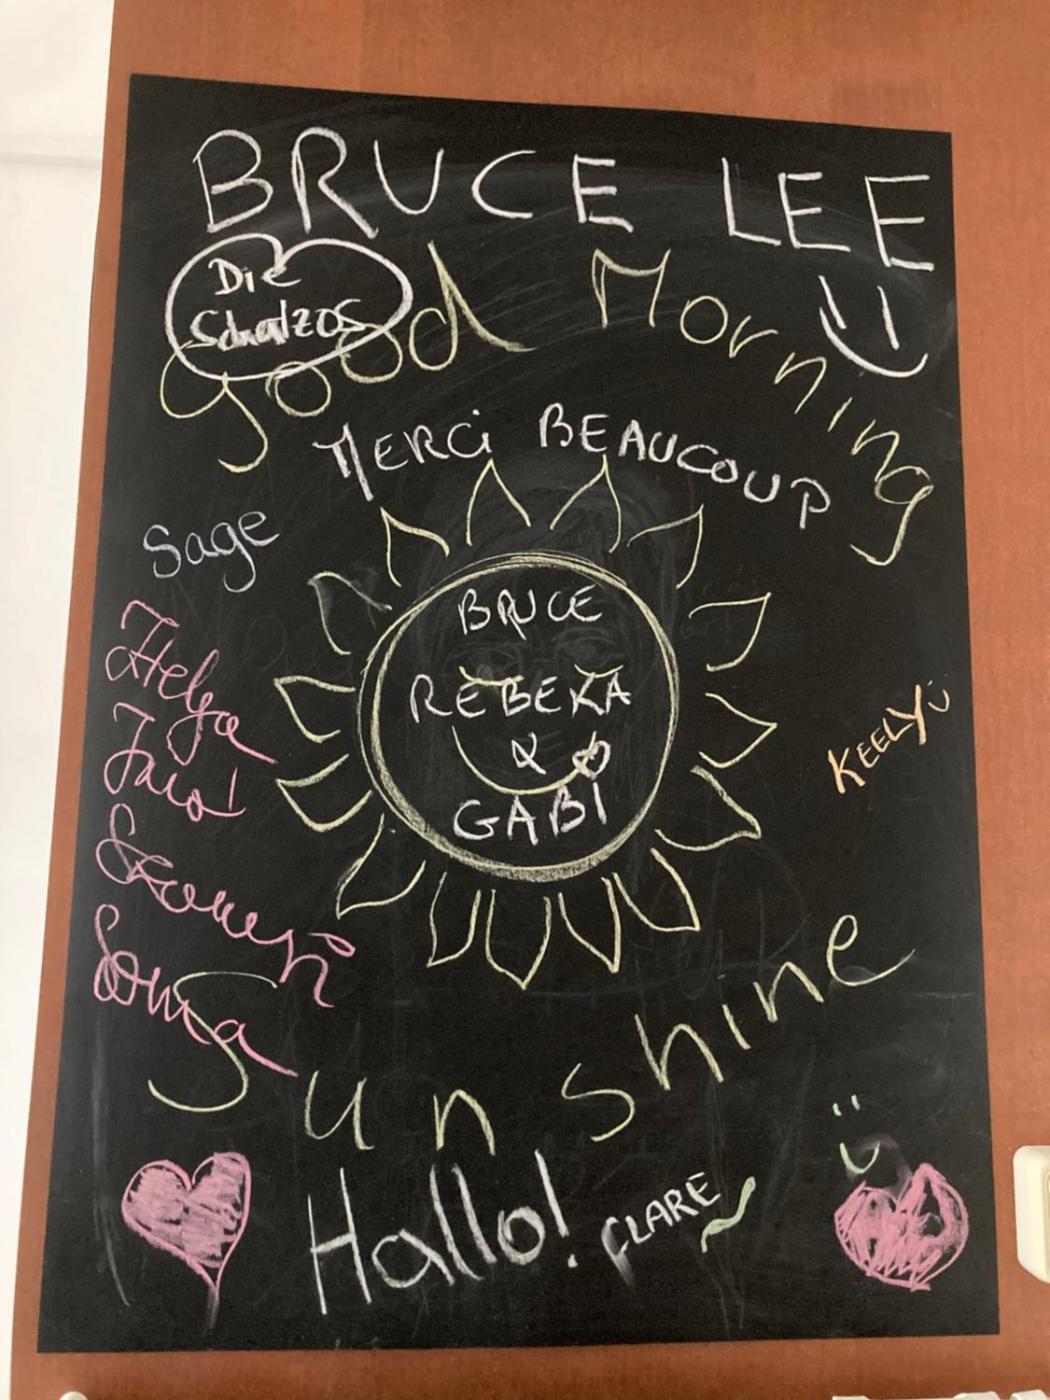 BRUCE LEE
Die
Schatzos
good Morning
MERCi BEAUCOUP
Sage
BRUCE
REBEKA
& 
GABi
Helga
KEELY
Sonja
Sunshine
Hallo!
CLARE